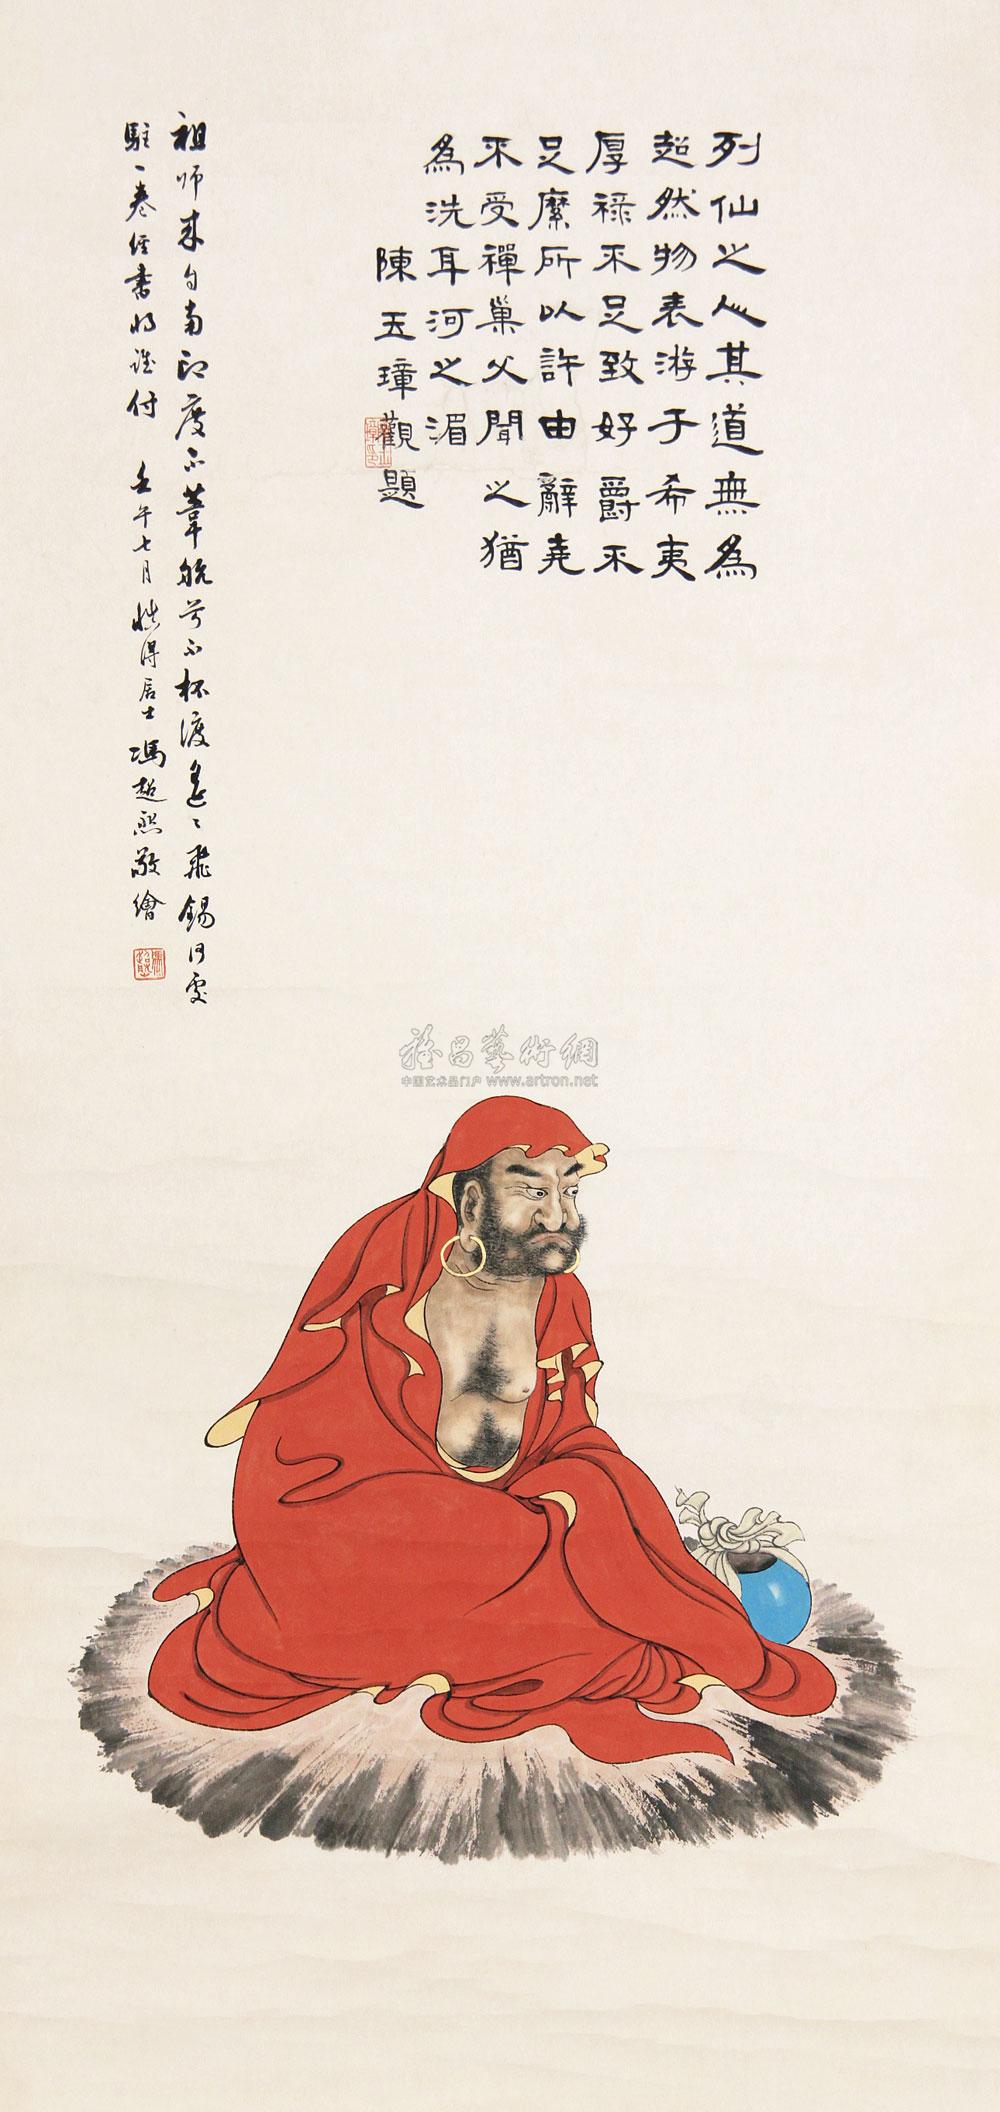 列仙之人其道無為
超然物表游于希夷
厚禄不足致好爵不
足縻所以許由辭堯
不受禪巢父聞之猶
為洗耳河之湄
陳玉璋觀題
祖师来自南印度不葦航兮不杯渡遙〻飛錫何處
駐一卷經書将誰付 壬午七月 得居士馮超然敬繪
雅昌藝術網
中国艺术品门户 www.artron.net